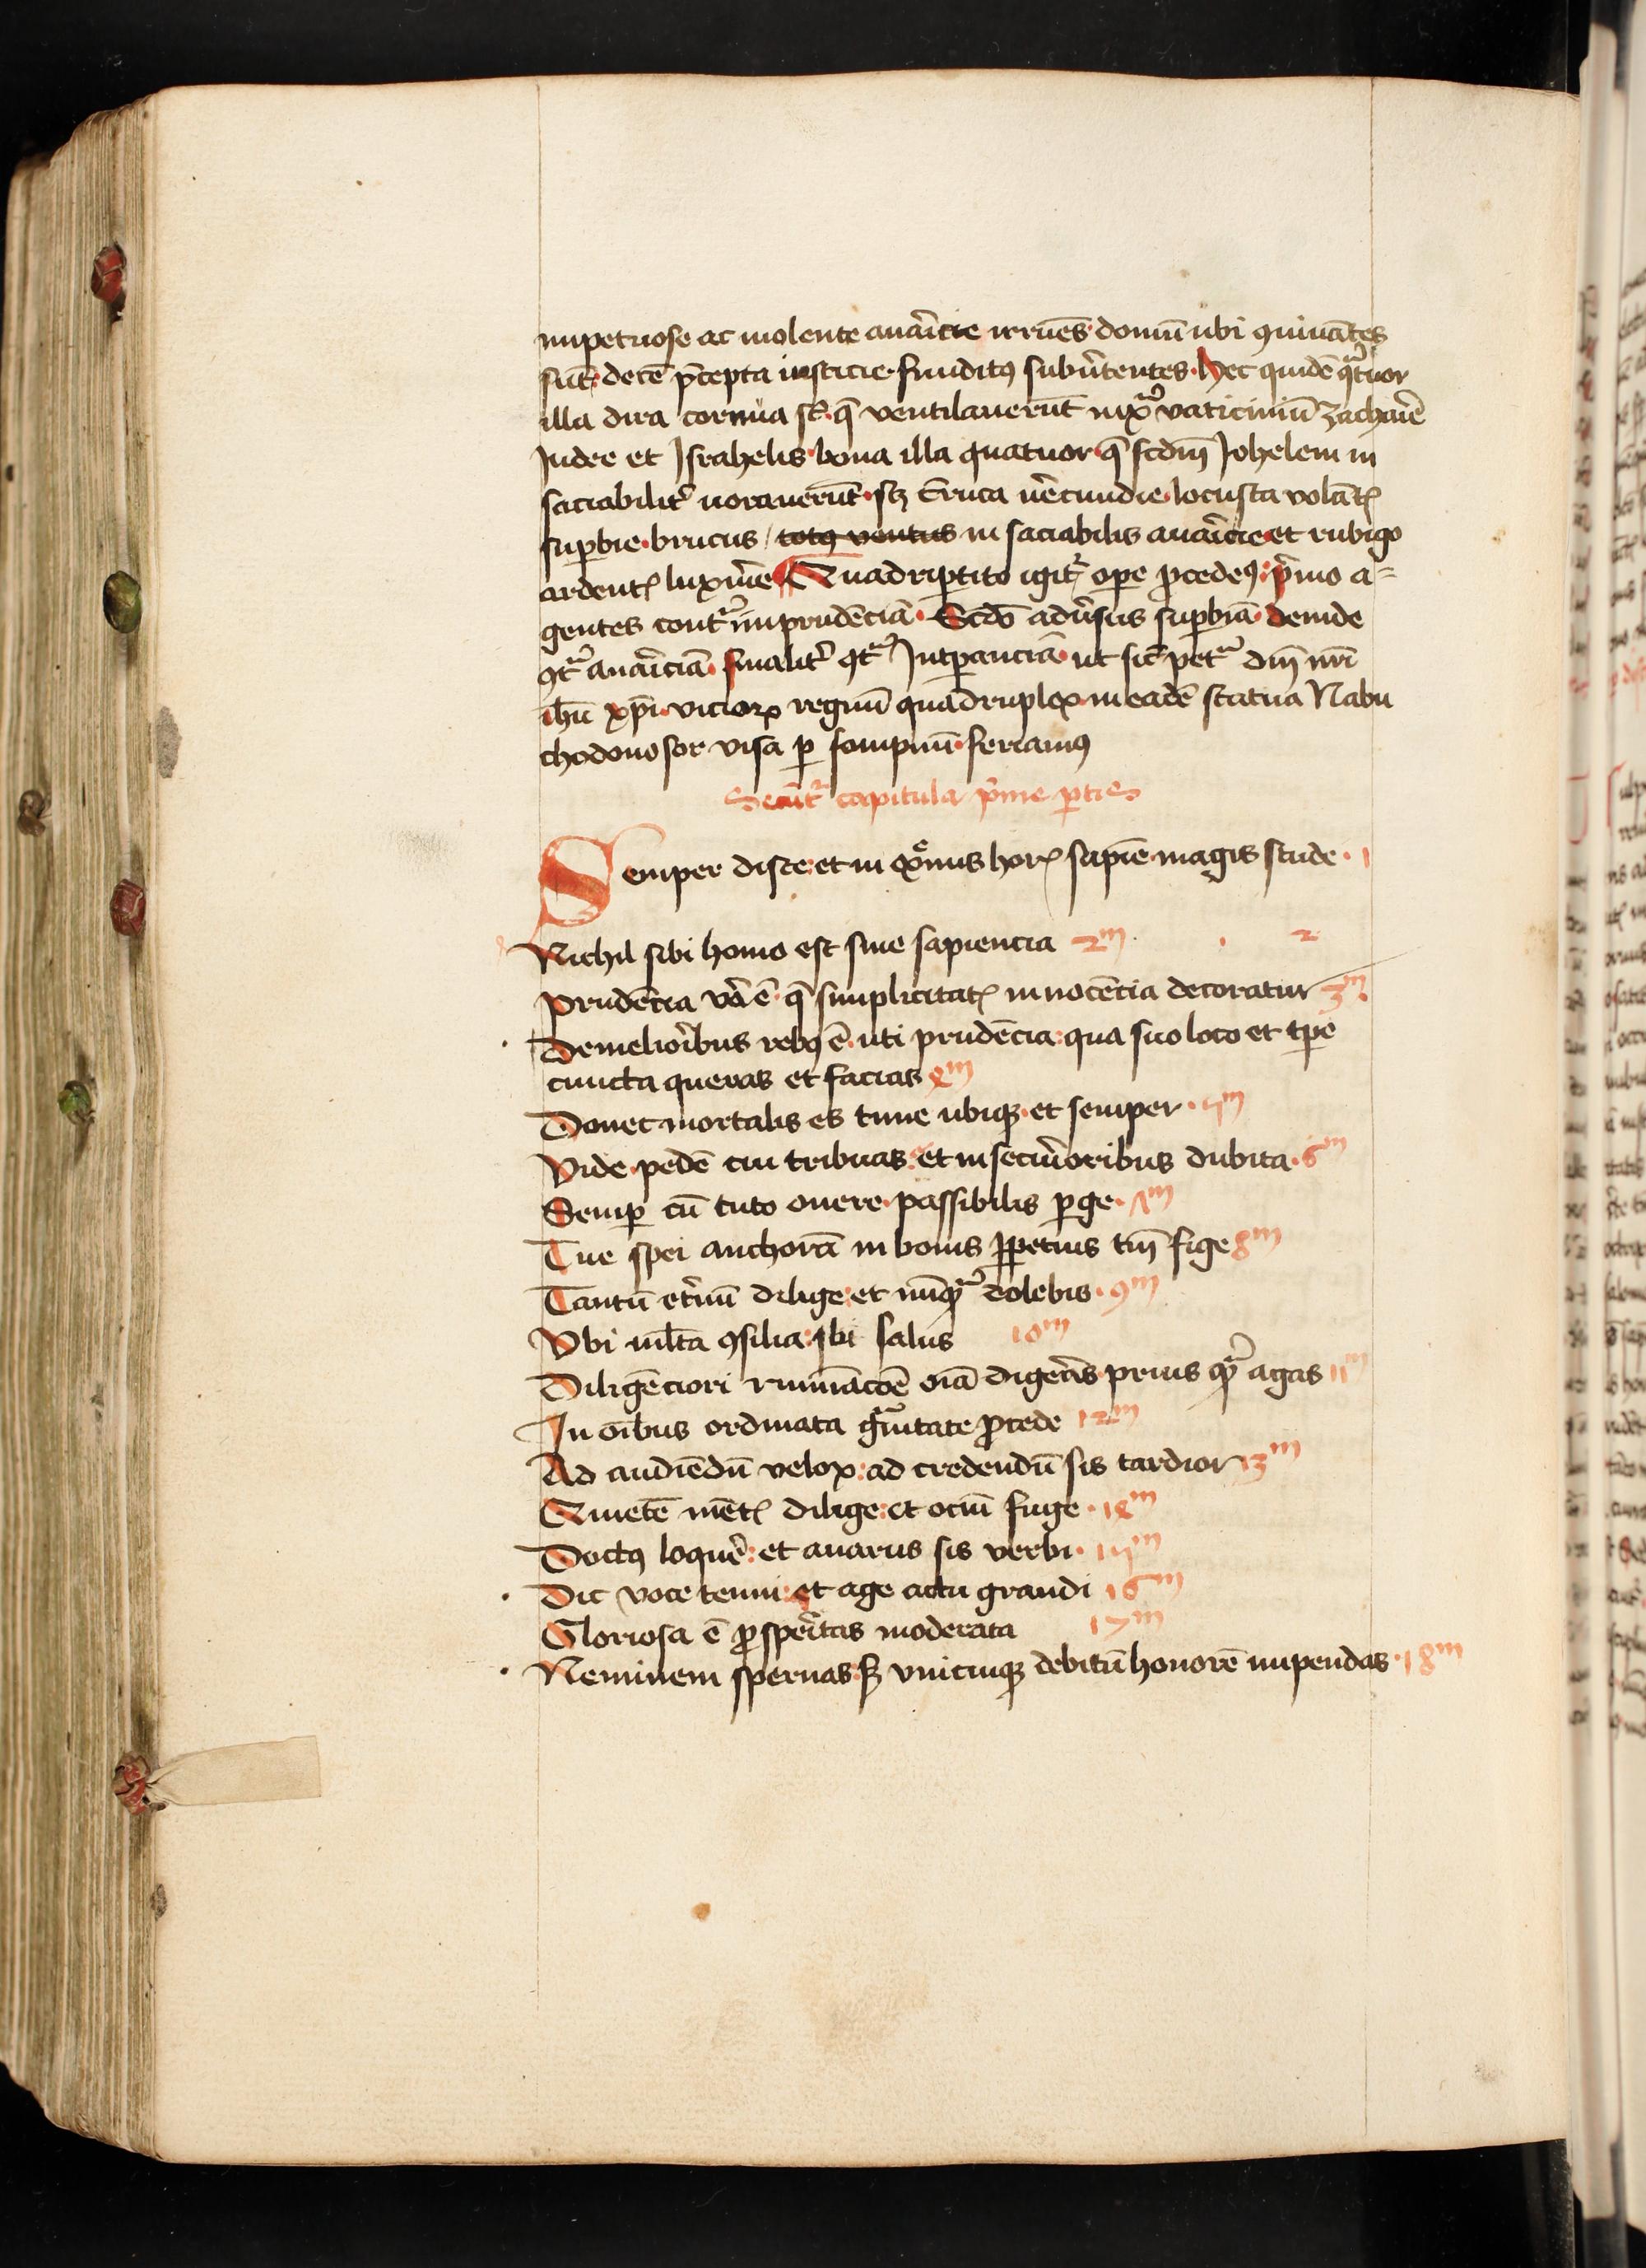 impetuose ac violente avaricie irruẽs domũ ubi ꝯvivãtes
sũt decẽ p̄cepta iusticie funditꝰ subv̉tentes. Hec quidẽ qͣtuor
illa dira cornua st̃ q̃ ventilaverũt iuxͣ vaticiniũ Zacharie
Iudee et Israhelis bona illa quatuor q̃ scd̃m Johelem in
saciabilit̉ voraverũt sꝫ Eruca v̉ecundie locusta volãtꝭ
sup̱bie brucus / totꝰ ventus in saciabilis avaricie et rubigo
ardentꝭ luxurie Quadrip̱tito igit̉ ope ꝓcedeꝰ p̉mo a=
gentes contͣ imprudẽciã. Scd̃o adv̉sus sup̱biã deinde
ꝯtͣ avariciã finalit̉ ꝯtͣ Intp̱anciã ut sic petͣ dñi nr̃i
ih̃u xp̃i vicioꝝ regnũ quadruplex in eadẽ statua Nabu
chodonosor visa ꝑ sompniũ feriamꝰ
Secũt̉ capitula p̉me ꝑtis
Semper disce: et in q̊ minus horꝭ sapiẽ magis stude. 1
Nichil sibi homo est sine sapiencia 2m 2
Prudẽcia v̉a ẽ q̃ simplicitatꝭ innocẽcia decoratur 3m
De melioribus rebꝰ ẽ uti prudẽcia: qua suo loco et tp̃e
cuncta queras et facias 4m
Donec mortalis es time ubiqꝫ et semper. 5m
Vide pedẽ cui tribuas: et in securioribus dubita. 6m
Semp̱ cũ tuto onere passibilis ꝑge. 7m
Tue spei anchorã in bonis ꝑpetuis tm̃ fige 8m
Tantũ et̉nũ dilige: et nũqͣ dolebis. 9m
Vbi mlt̃a ꝯsilia: ibi salus 10m
Diligẽciori ruminac̃oẽ oĩa digeras prius qͣ agas 11m
In oĩbus ordinata gͣvitate ꝓcede 12m
Ad audiẽdũ velox: ad credendũ sis tardior 13m
Quietẽ mẽtꝭ dilige: et ociũ fuge. 14m
Doctꝰ loquer̉: et avarus sis verbi. 15m
Dic voce tenui: et age actu grandi 16m
Gloriosa ẽ ꝓsperitas moderata 17m
Neminem spernas: sꝫ unicuiqꝫ debitũ honorẽ impendas. 18m